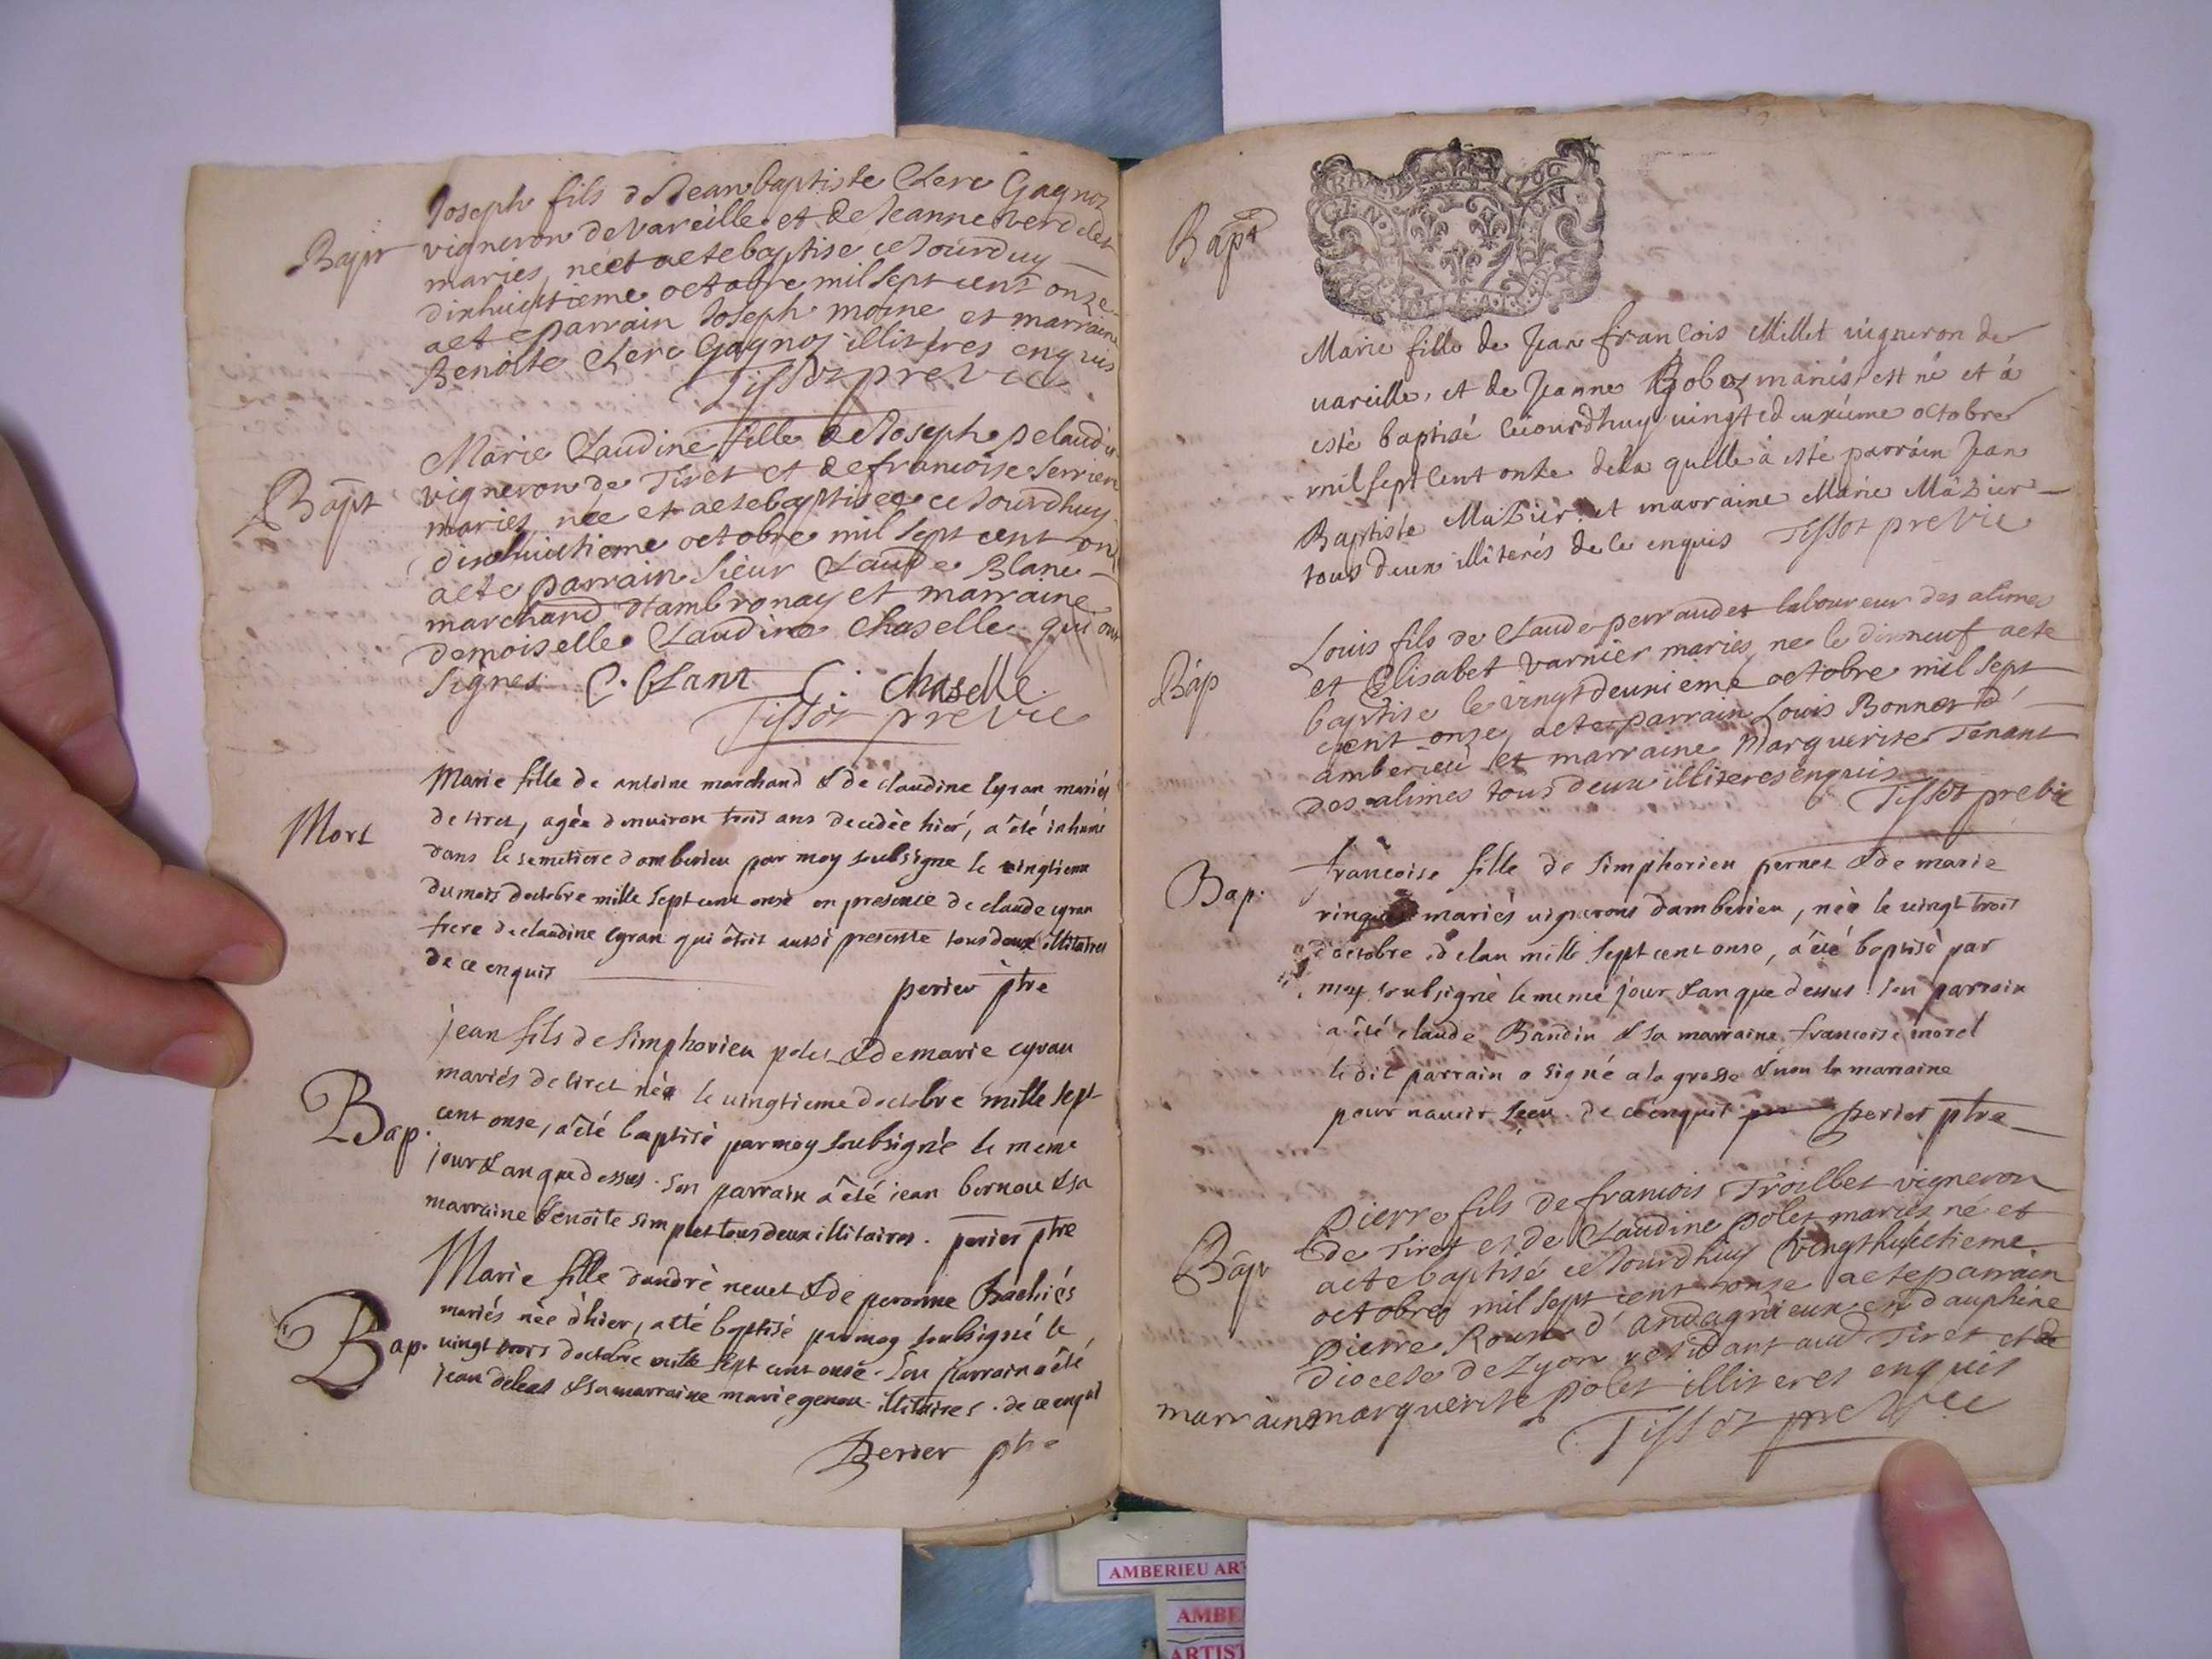 Bapt
Joseph fils de Jean baptiste Clerc Gagnoz
vigneron de vareille et de Jeanne verdelet
maries, né et a ete baptise ce Jourduy
dixhuictieme octobre mil sept cent onze
a ete parrain Joseph moine et marraine
Benoite Clerc Gagnoz illiteres enquis
Tissot pre vic
Bapt
Marie Claudine fille de Joseph pelaudi
vigneron de Tiret et de francoise
maries, née et a ete baptisee ce Jourdhuy
dixhuictieme octobre mil sept cent on
a ete parrain Sieur Claude Blanc
marchand d'ambronay et marraine
demoiselle Claudine Chaselle qui ont
signes C. C: chaselle.
Tissot pre vic
Mort
Marie fille de antoine marchand & de claudine cyran mariés
de tiret, agèe denuiron trois ans decedèe hier, a êté inhumé
dans le semetiere damberieu par moy soubsigne le vingtieme
du mois doctobre mille sept cent onse en presence de claude cyran
frere de claudine cyran qui êtoit aussi presente tous deux illitaires
de ce enquis
perier ptre
Bap.
jean fils de simphorien polet & de marie cyran
mariés de tiret née le uingtieme doctobre mille sept
cent onse, a êté baptisé par moy soubsignè le meme
jour & an que dessus. son parrain a êté jean bornou & sa
marraine benoite simplet tous deux illitaires. perier ptre
Bap.
Marie fille dandrè neuet & de peronne
mariés née d'hier, a eté baptisé par moy soubsigné le
uingt trois doctobre mille sept cent onse. son parrain a êté
jean & sa marraine marie genou. illitaires. de ce enquis
Perier ptre
Bapt
GEN
Marie fille de Jean françois Millet uigneron de
uareille, et de Jeanne mariés, est né et à
esté baptisé ceiourdhuy uingt deuxiéme octobre
mil sept cent onze de la quelle à esté parrain Jean
Baptiste Mazier et marraine Marie Mazier
tous deux illiterés de ce enquis Tissot pre vic
Bap
Louis fils de Claude perraudet laboureur des alimes
et Elisabet varnier maries, ne le dixneuf a ete
baptise le vingt deuxieme octobre mil sept
cent onze, a ete parrain Louis Bonnet d'
amberieu et marraine Marguerite Tenant
des alimes tous deux illiteres enquis
Tissot pre vic
Bap.
francoise fille de simphorien pernet & de marie
mariès uignerons damberieu, née le uingt trois
d'octobre de lan mille sept cent onse, a êté baptisé par
moy soubsignè le meme jour & an que dessus. son parrain
a êté claude Baudin & sa marraine francoise morel
le dit parrain a signé a la grosse & non la marraine
pour nauoir sçeu de ce enquit perier ptre
Bap
Pierre fils de francois Troillet vigneron
de Tiret et de Claudine polet maries né et
a ete baptisé ce Jourdhuy vingt huictieme
octobre mil sept cent onze a ete parrain
Pierre Roux d'andagnieux en dauphine
diocese de Lyon residant aud Tiret et de
marraine marguerite polet illiteres enquis
Tissot pre vic
AMBERIEU ART
AMBE
ARTIST